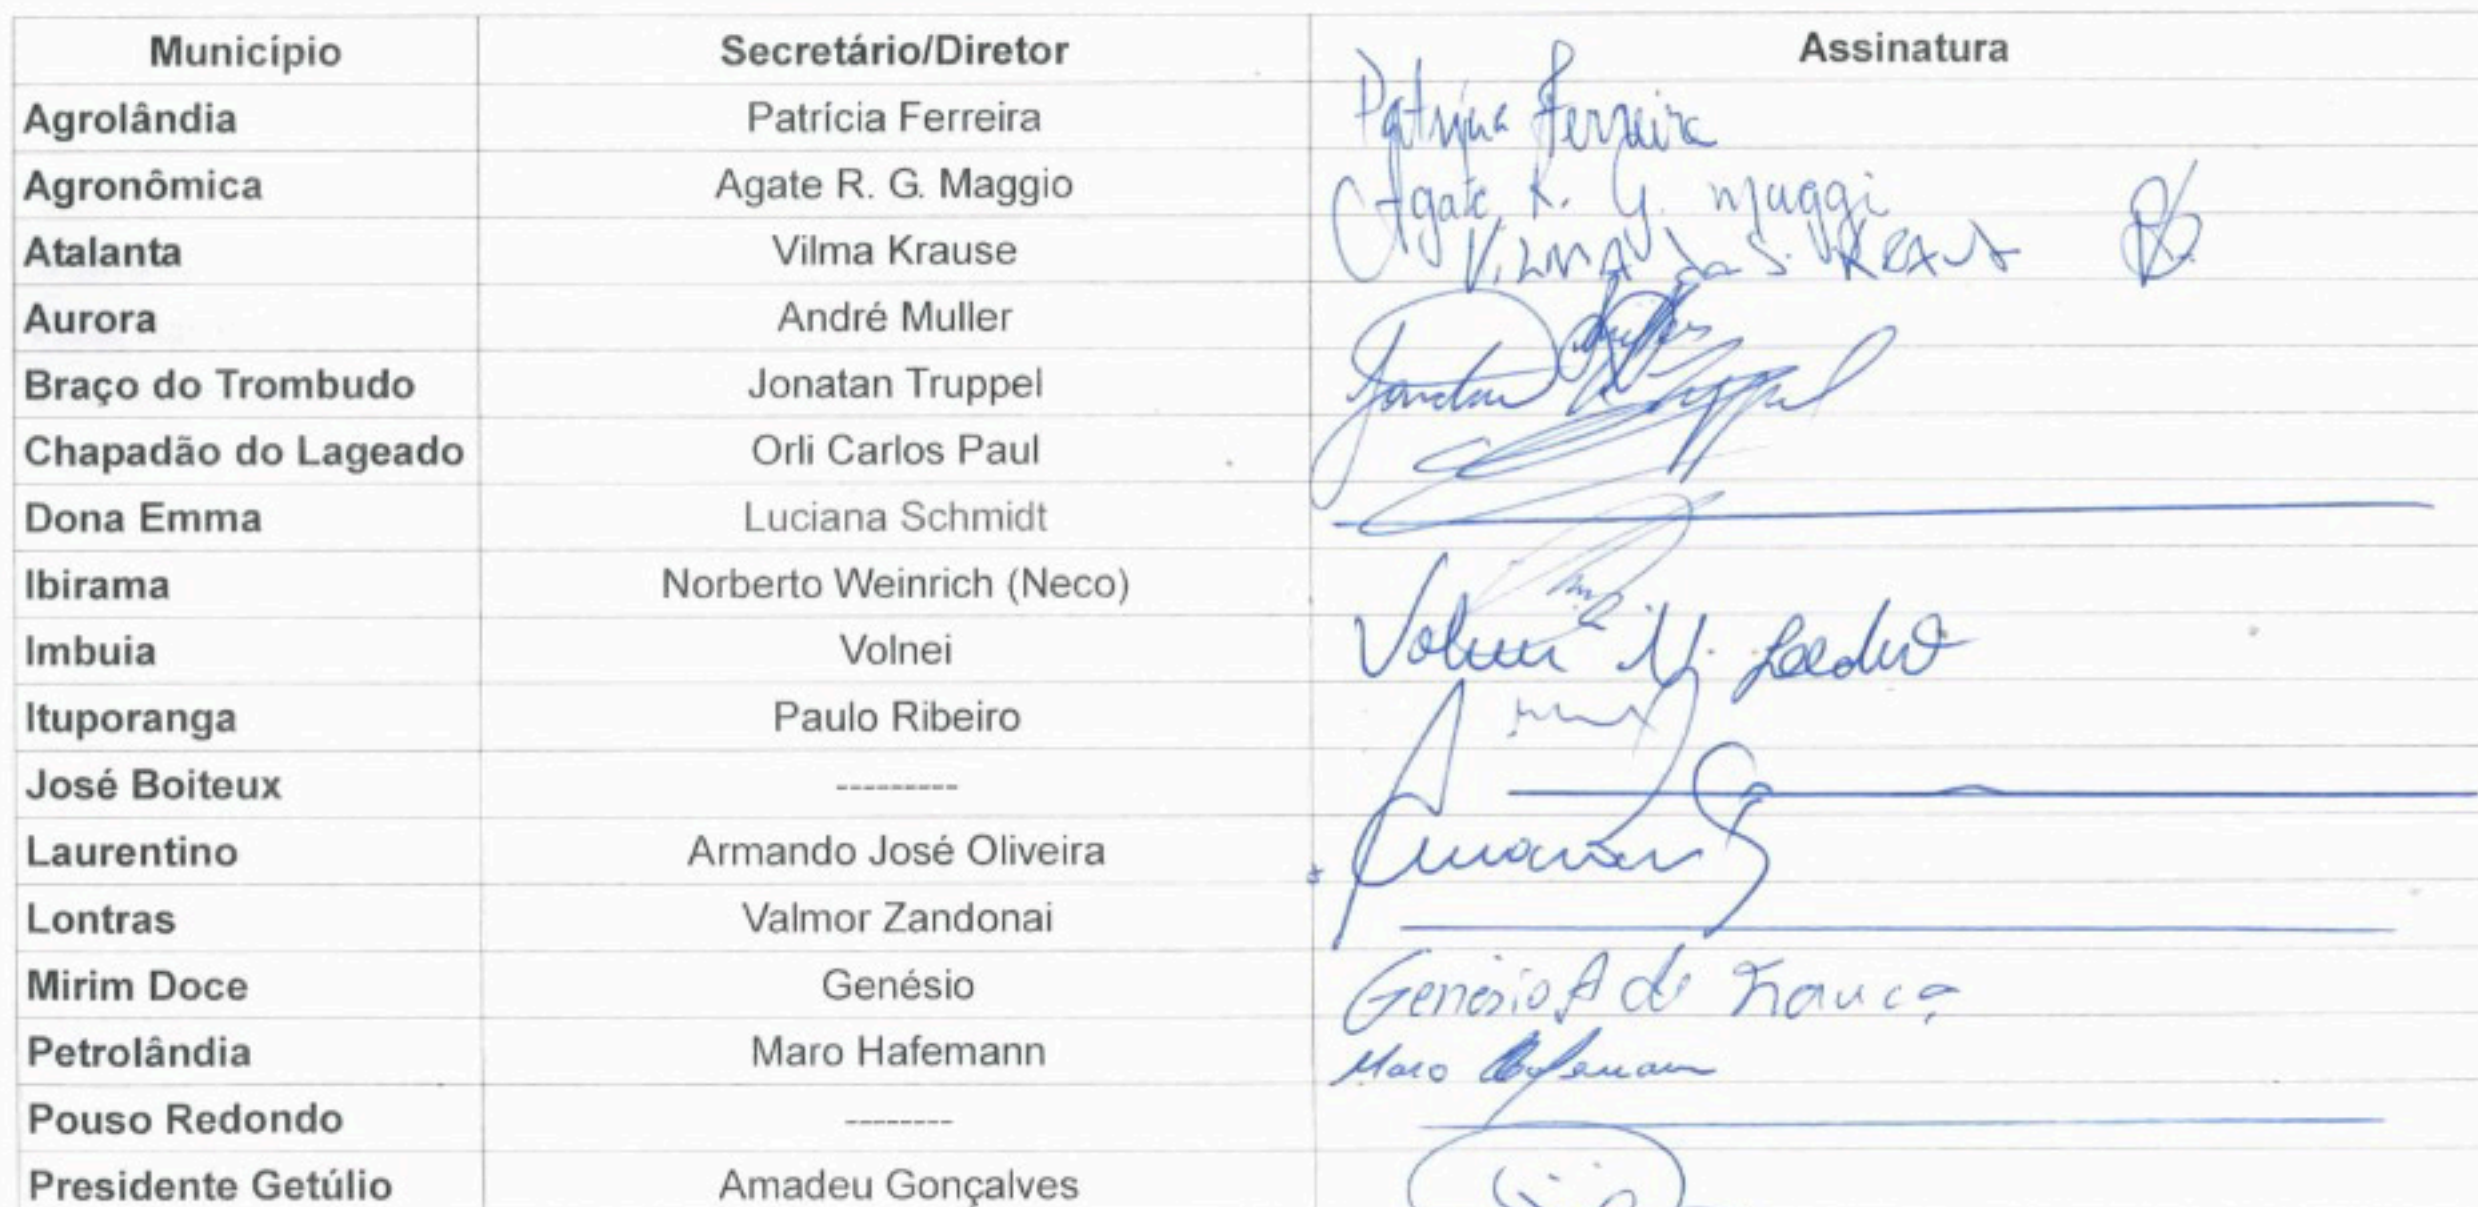 Município Secretário/Diretor Assinatura
Agrolândia Patrícia Ferreira Patrícia Ferreira
Agronômica Agate R. G. Maggio Agate R. G. Maggi
Atalanta Vilma Krause VILMA da S.
Aurora André Muller
Braço do Trombudo Jonatan Truppel Jonatan Truppel
Chapadão do Lageado Orli Carlos Paul
Dona Emma Luciana Schmidt
Ibirama Norberto Weinrich (Neco)
Imbuia Volnei Volnei
Ituporanga Paulo Ribeiro
José Boiteux ---------
Laurentino Armando José Oliveira
Lontras Valmor Zandonai
Mirim Doce Genésio Genésio A de França
Petrolândia Maro Hafemann Maro Hafemann
Pouso Redondo --------
Presidente Getúlio Amadeu Gonçalves